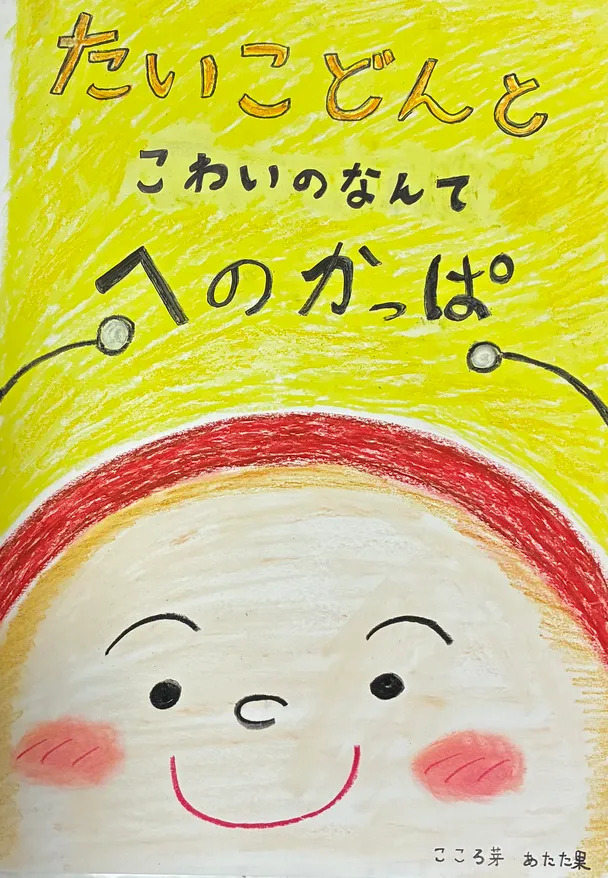 たいこどんと
こわいのなんて
へのかっぱ
こころ芽 あたた果